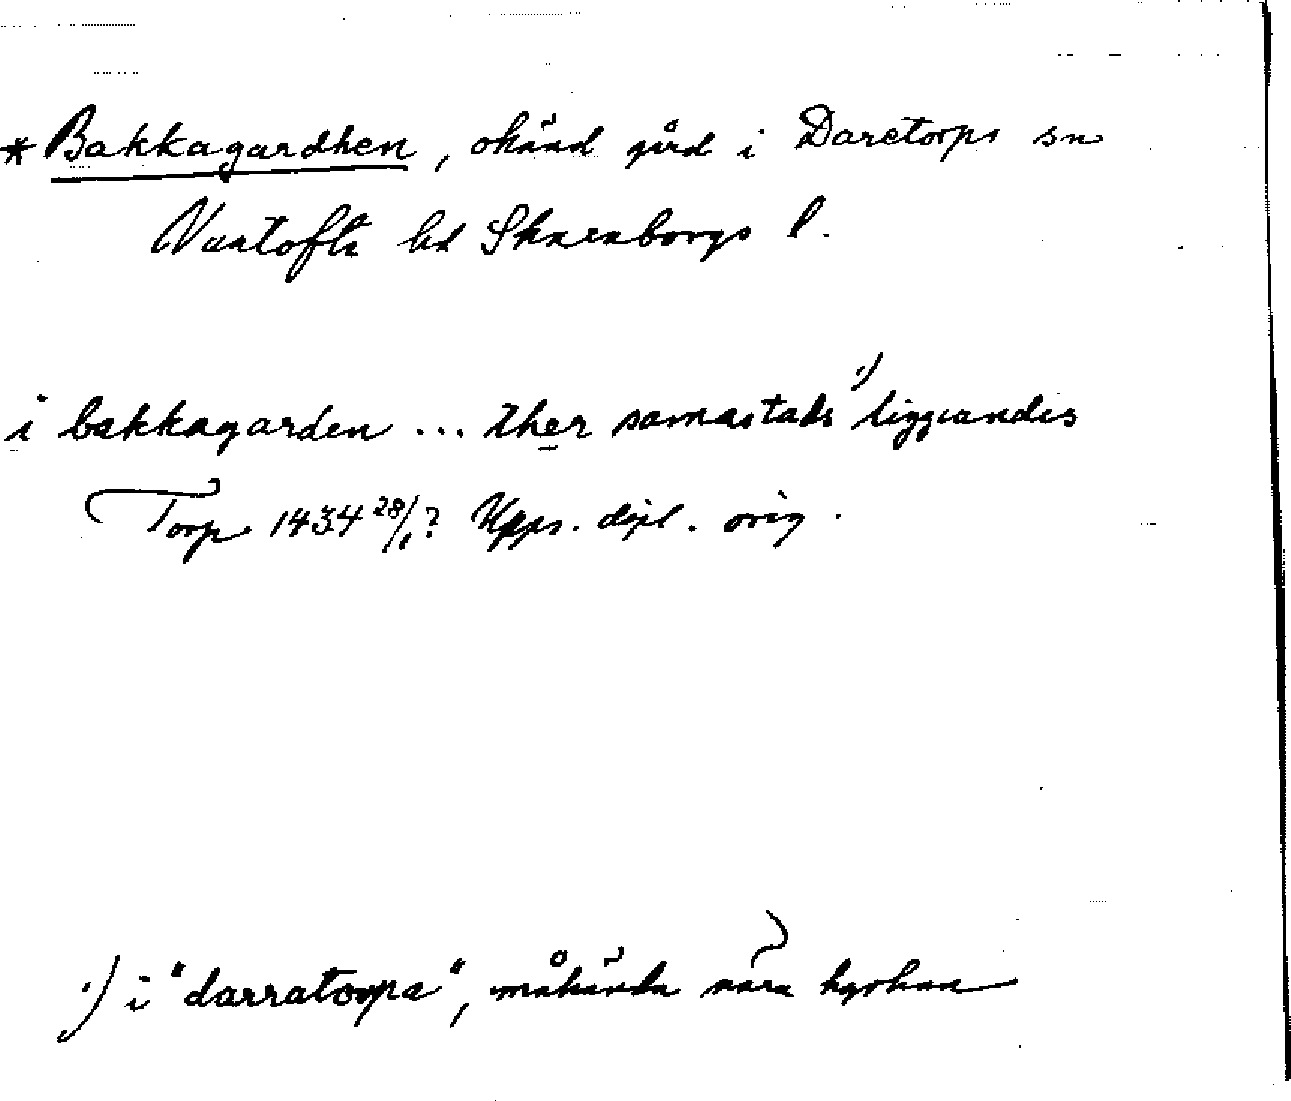 * Bakkagardhen, okänd gård i Daretorps sn
Vartofta hd Skaraborgs l.
i bakkagarden ... ther samastads ¹) liggiandis
Torp 1434 28/1? Upps. dipl. orig.
¹) i "darratorpa", måhända nära kyrkan